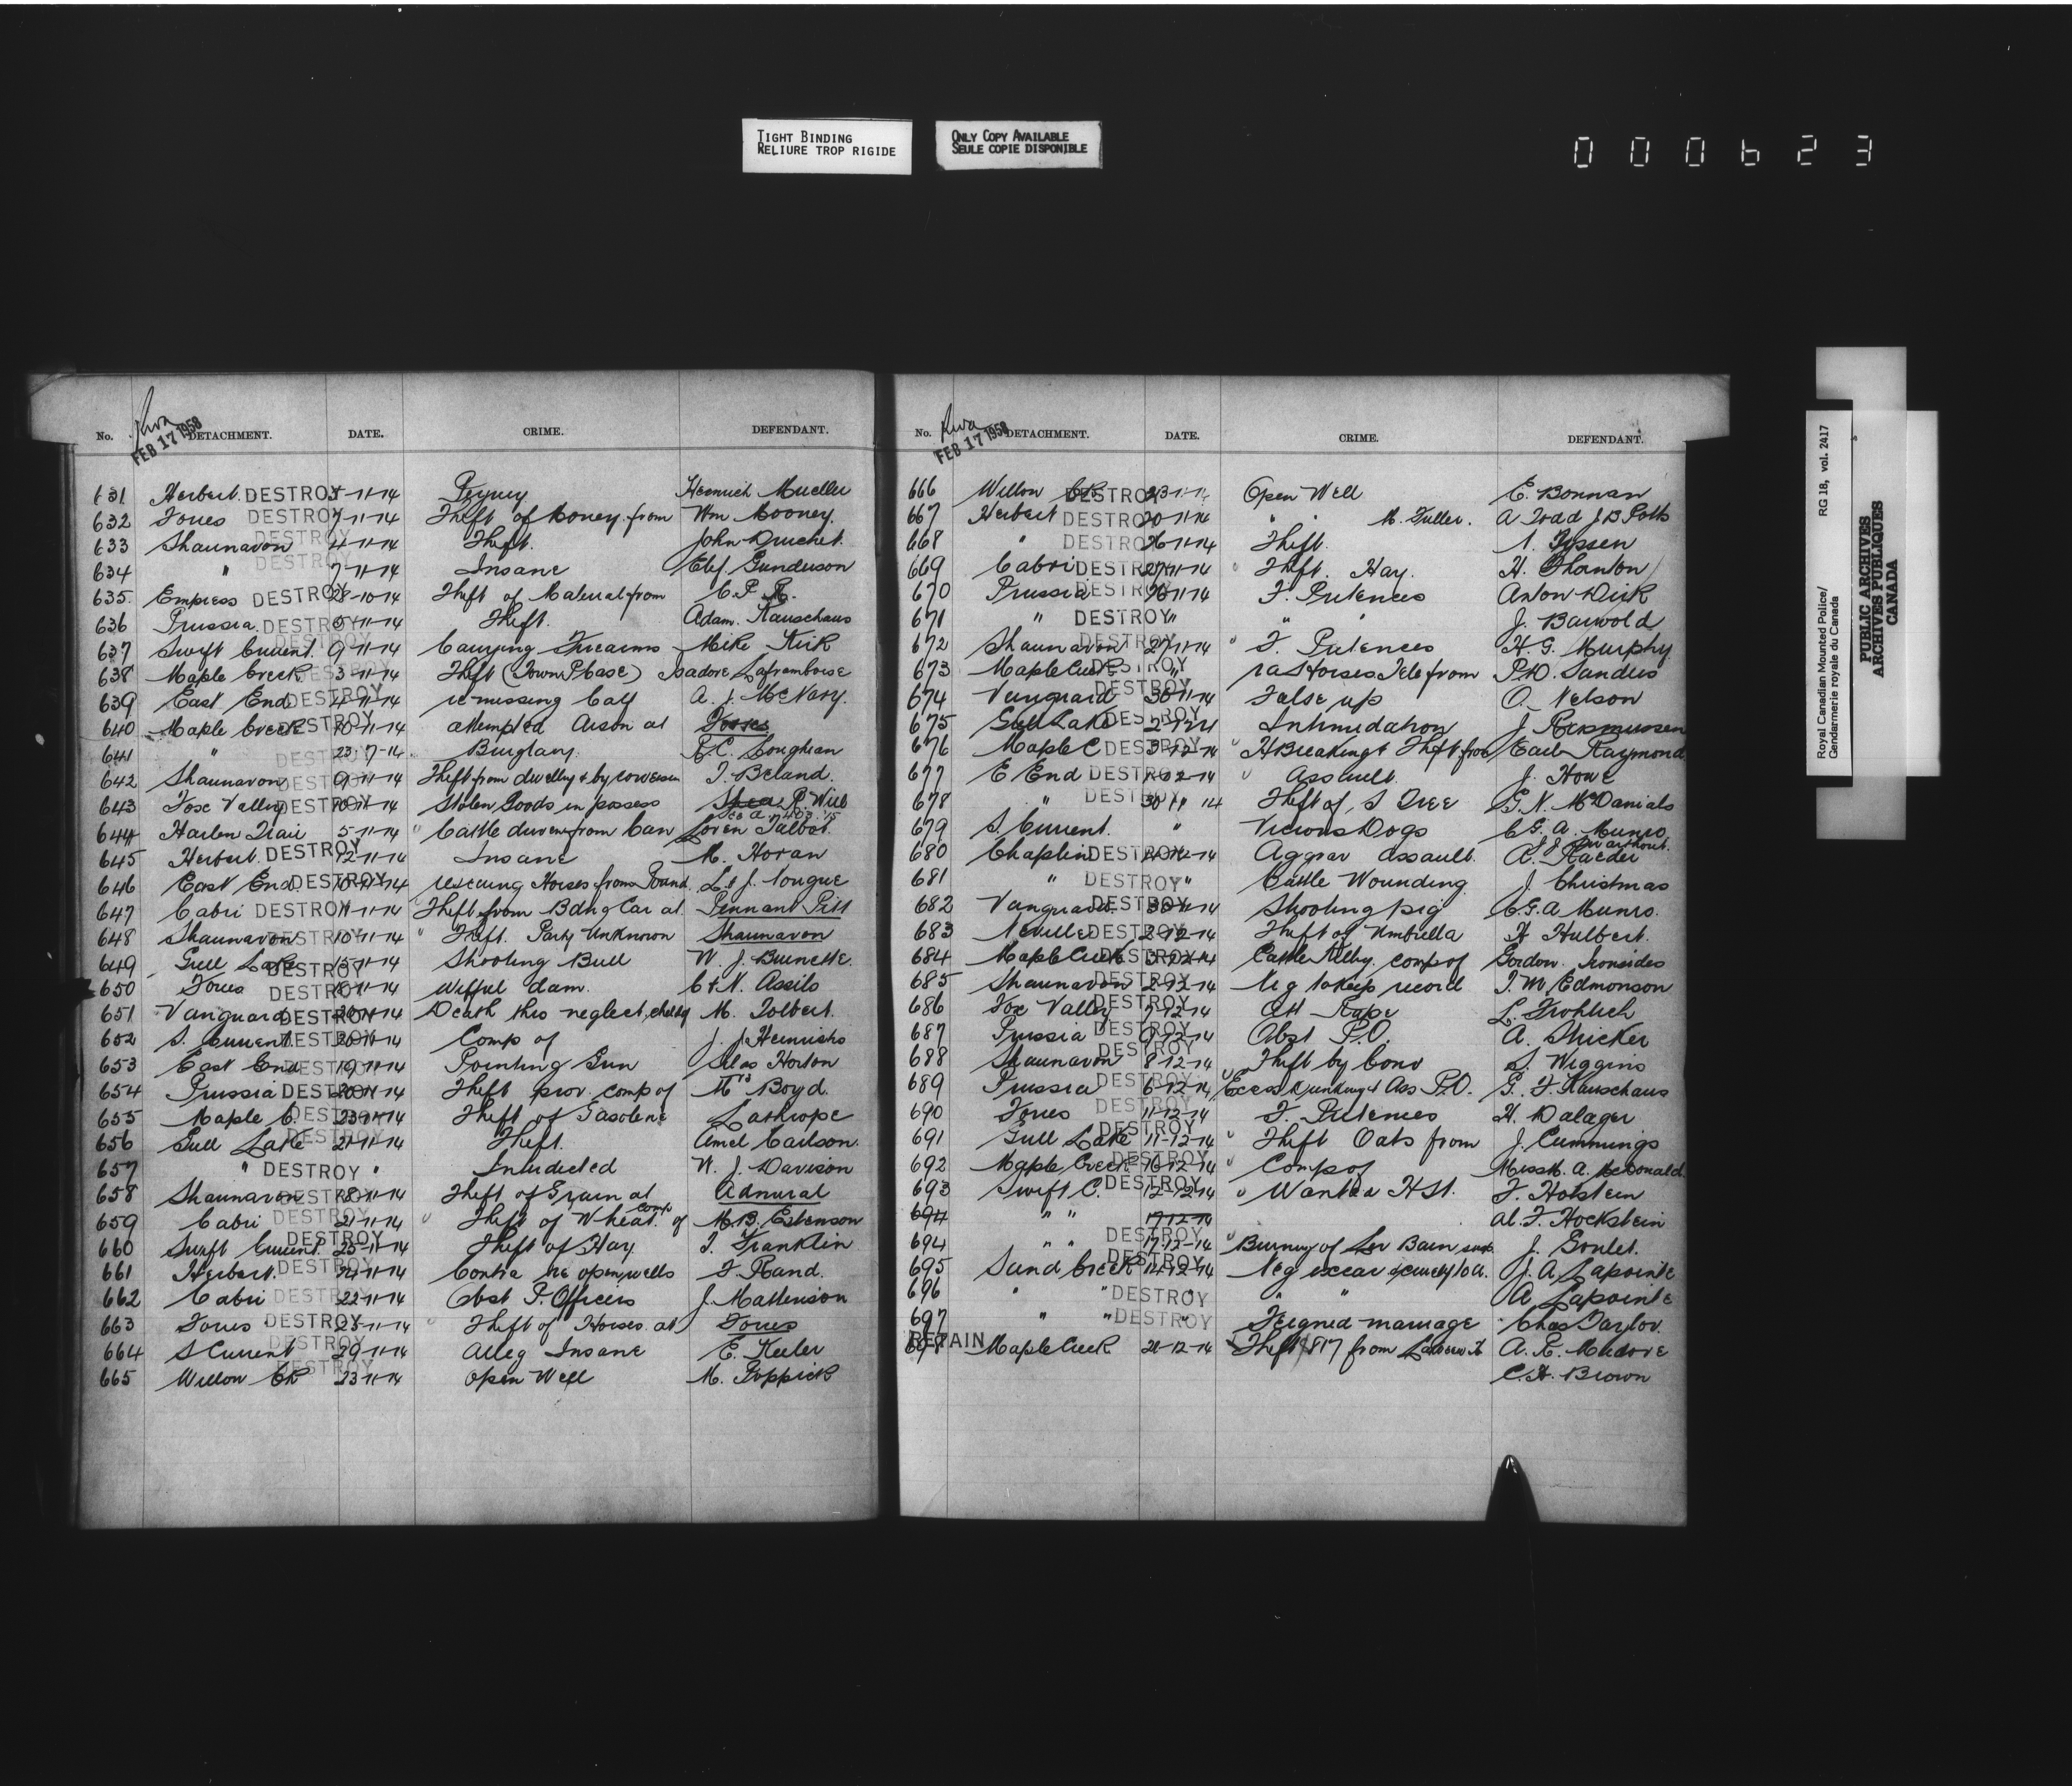 TIGHT BINDING
RELIURE TROP RIGIDE
ONLY COPY AVAILABLE
SEULE COPIE DISPONIBLE
000623
FEB 17 1958
No. DETACHMENT. DATE. CRIME. DEFENDANT.
631 Herbert. DESTROY 5-11-14 Perjury Heinrich Mueller
632 Torres DESTROY 7-11-14 Theft of Money from Wm Mooney.
633 Shaunavon DESTROY 4-11-14 Theft. John
634 " DESTROY 7-11-14 Insane Gunderson
635 Empress DESTROY 28-10-14 Theft of Material from C.P.R.
636 Prussia. DESTROY 5-11-14 Theft. Adam. Rauschaus
637 Swift Current. DESTROY 9-11-14 Carrying Firearms Mike Kirk
638 Maple Creek DESTROY 3-11-14 Theft (Town Please) Isadore Laframboise
639 East End DESTROY 4-11-14 re missing Calf A. J. McNary.
640 Maple Creek DESTROY 10-11-14 attempted Arson at
641 " DESTROY 23-7-14 Burglary. R.C. Longhran
642 Shaunavon DESTROY 9-11-14 Theft from dwellg & by conversn T. Beland.
643 Fox Valley DESTROY 10-11-14 Stolen Goods in possess R. Will
644 Harlen Trail 5-11-14 " Cattle driven from Can Loren Talbot.
645 Herbert. DESTROY 12-11-14 Insane M. Horan
646 East End. DESTROY 10-11-14 rescuing Horses from Pound L & J. Tongue
647 Cabri DESTROY 11-11-14 " Theft from Bdng Car at Pennant Pitt
648 Shaunavon DESTROY 10-11-14 " Theft. Party Unknown Shaunavon
649 Gull Lake DESTROY 15-11-14 Shooting Bull W. J. Burnette.
650 Torres DESTROY 18-11-14 Wilful dam. C & N. Assils
651 Vanguard DESTROY 20-11-14 Death thro neglect, child M. Tolbert.
652 S. Current DESTROY 20-11-14 Comp of J. J. Heinrichs
653 East End DESTROY 19-11-14 Pointing Gun Silas Horton
654 Prussia DESTROY 20-11-14 Theft prov. comp of Mrs Boyd.
655 Maple C. DESTROY 23-11-14 Theft of Gasolene Lathrope
656 Gull Lake DESTROY 21-11-14 Theft. Amel Carlson.
657 " DESTROY " Interdicted W. J. Davison
658 Shaunavon DESTROY 18-11-14 Theft of Grain at Admiral
659 Cabri DESTROY 21-11-14 " Theft of Wheat. comp of M.B. Estenson
660 Swift Current. DESTROY 25-11-14 Theft of Hay T. Franklin
661 Herbert. DESTROY 24-11-14 Contra re open wells F. Rand.
662 Cabri DESTROY 22-11-14 Obst P. Officers J. Mattenson
663 Torres DESTROY 25-11-14 " Theft of Horses at Torres
664 S Current DESTROY 29-11-14 Alleg Insane E. Keeler
665 Willow Ck DESTROY 23-11-14 Open Well M. Poppick
FEB 17 1958
No. DETACHMENT. DATE. CRIME. DEFENDANT.
666 Willow Ck DESTROY 23-11-14 Open Well E. Bonnan
667 Herbert DESTROY 20-11-14 " " M. Fuller. A Todd J B Potts
668 " DESTROY 26-11-14 Theft.
669 Cabri DESTROY 27-11-14 " Theft. Hay. H. Thornton
670 Prussia DESTROY 26-11-14 F. Pretences Anton Dirk
671 " DESTROY " " " J. Barwold
672 Shaunavon DESTROY 27-11-14 " F. Pretences H. G. Murphy
673 Maple Creek DESTROY " ra Horses Tele from P.D. Sanders
674 Vanguard DESTROY 30-11-14 False up O. Nelson
675 Gull Lake DESTROY 2-12-14 Intimidation J. Rasmussen
676 Maple C DESTROY 3-12-14 " H Breaking & Theft from Earl Raymond
677 E End DESTROY 1-12-14 " Assault. J. Howe
678 " DESTROY 30 11 14 Theft of, S Tree G. N. McDanials
679 S. Current. " Vicious Dogs C G. A. Munro
680 Chaplin DESTROY 11-12-14 Aggrav assault. A. Raeder
681 " DESTROY " Cattle Wounding J. Christmas
682 Vanguard. DESTROY 30-11-14 Shooting pig C.G.A Munro.
683 Neville DESTROY 2-12-14 Theft of Umbrella H Hulbert.
684 Maple Creek DESTROY 3-12-14 Cattle Killg. comp of Gordon. Ironsides
685 Shaunavon DESTROY 2-12-14 Neg to keep record T. M. Edmonson
686 Fox Valley DESTROY 7-12-14 Att Rape L. Frohlich
687 Prussia DESTROY 9-12-14 Obst P.O. A. Stricker
688 Shaunavon DESTROY 8-12-14 Theft by Conv S. Wiggins
689 Prussia DESTROY 6-12-14 Excess Drinking & Ass P.O. G. F. Rauschaus
690 Torres DESTROY 11-12-14 F. Pretences H. Dalager
691 Gull Lake DESTROY 11-12-14 " Theft Oats from J. Cummings
692 Maple Creek DESTROY 16-12-14 " Comp of Miss M. A. McDonald.
693 Swift C. DESTROY 12-12-14 " Wanted H St. F. Holstein
694 " " 17-12-14 al. F. Hockstein
694 " " DESTROY 17-12-14 " Burning of Liv Barn J. Goulet.
695 Sand Creek DESTROY 14-12-14 Neg J. A Lapointe
696 " " DESTROY " " A Lapointe
697 " " DESTROY " Feigned marriage Chas Taylor.
RETAIN 698 Maple Creek 21-12-14 Theft $817 from A. R.
C.H. Brown
Royal Canadian Mounted Police/ RG 18, vol. 2417
Gendarmerie royale du Canada
PUBLIC ARCHIVES
ARCHIVES PUBLIQUES
CANADA